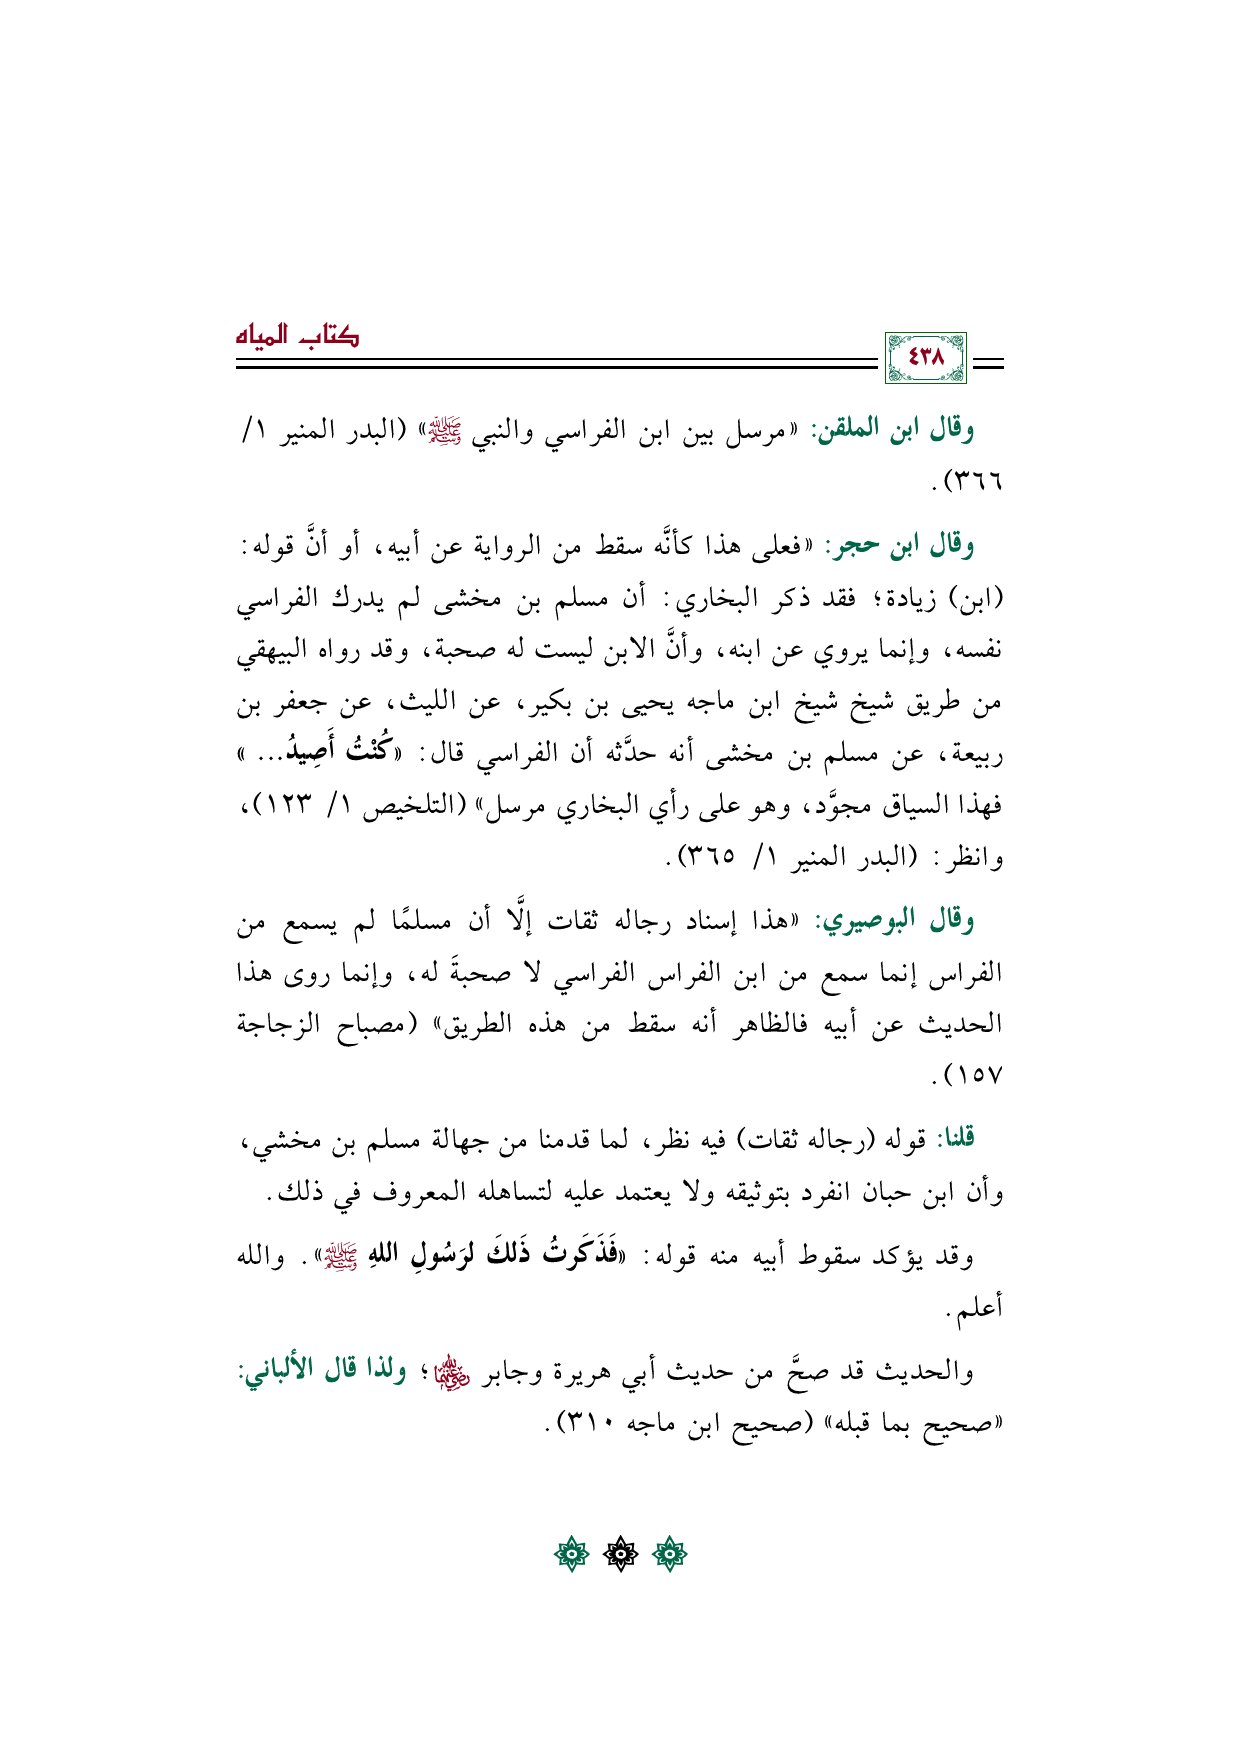 كتاب المياه
٤٣٨
وقال ابن الملقن: «مرسل بين ابن الفراسي والنبي ﷺ» (البدر المنير ١/
٣٦٦).
وقال ابن حجر: «فعلى هذا كأنَّه سقط من الرواية عن أبيه، أو أنَّ قوله:
(ابن) زيادة؛ فقد ذكر البخاري: أن مسلم بن مخشى لم يدرك الفراسي
نفسه، وإنما يروي عن ابنه، وأنَّ الابن ليست له صحبة، وقد رواه البيهقي
من طريق شيخ شيخ ابن ماجه يحيى بن بكير، عن الليث، عن جعفر بن
ربيعة، عن مسلم بن مخشى أنه حدَّثه أن الفراسي قال: «كُنْتُ أَصِيدُ... »
فهذا السياق مجوَّد، وهو على رأي البخاري مرسل» (التلخيص ١/ ١٢٣)،
وانظر: (البدر المنير ١/ ٣٦٥).
وقال البوصيري: «هذا إسناد رجاله ثقات إلَّا أن مسلمًا لم يسمع من
الفراس إنما سمع من ابن الفراس الفراسي لا صحبةَ له، وإنما روى هذا
الحديث عن أبيه فالظاهر أنه سقط من هذه الطريق» (مصباح الزجاجة
١٥٧).
قلنا: قوله (رجاله ثقات) فيه نظر، لما قدمنا من جهالة مسلم بن مخشي،
وأن ابن حبان انفرد بتوثيقه ولا يعتمد عليه لتساهله المعروف في ذلك.
وقد يؤكد سقوط أبيه منه قوله: «فَذَكَرتُ ذَلكَ لرَسُولِ اللهِ ﷺ». والله
أعلم.
والحديث قد صحَّ من حديث أبي هريرة وجابر رضي الله عنهما؛ ولذا قال الألباني:
«صحيح بما قبله» (صحيح ابن ماجه ٣١٠).